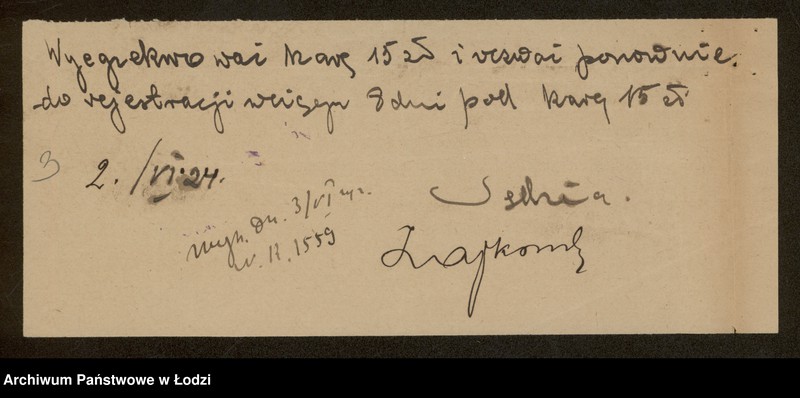 Wyegzekwować karę 15 zł i wezwać ponownie.
do rejestracji w ciągu 8 dni pod karą 15 zł
3
2./VI.24.
Sędzia.
wyk. dn. 3/VI
K. 1559
Archiwum Państwowe w Łodzi